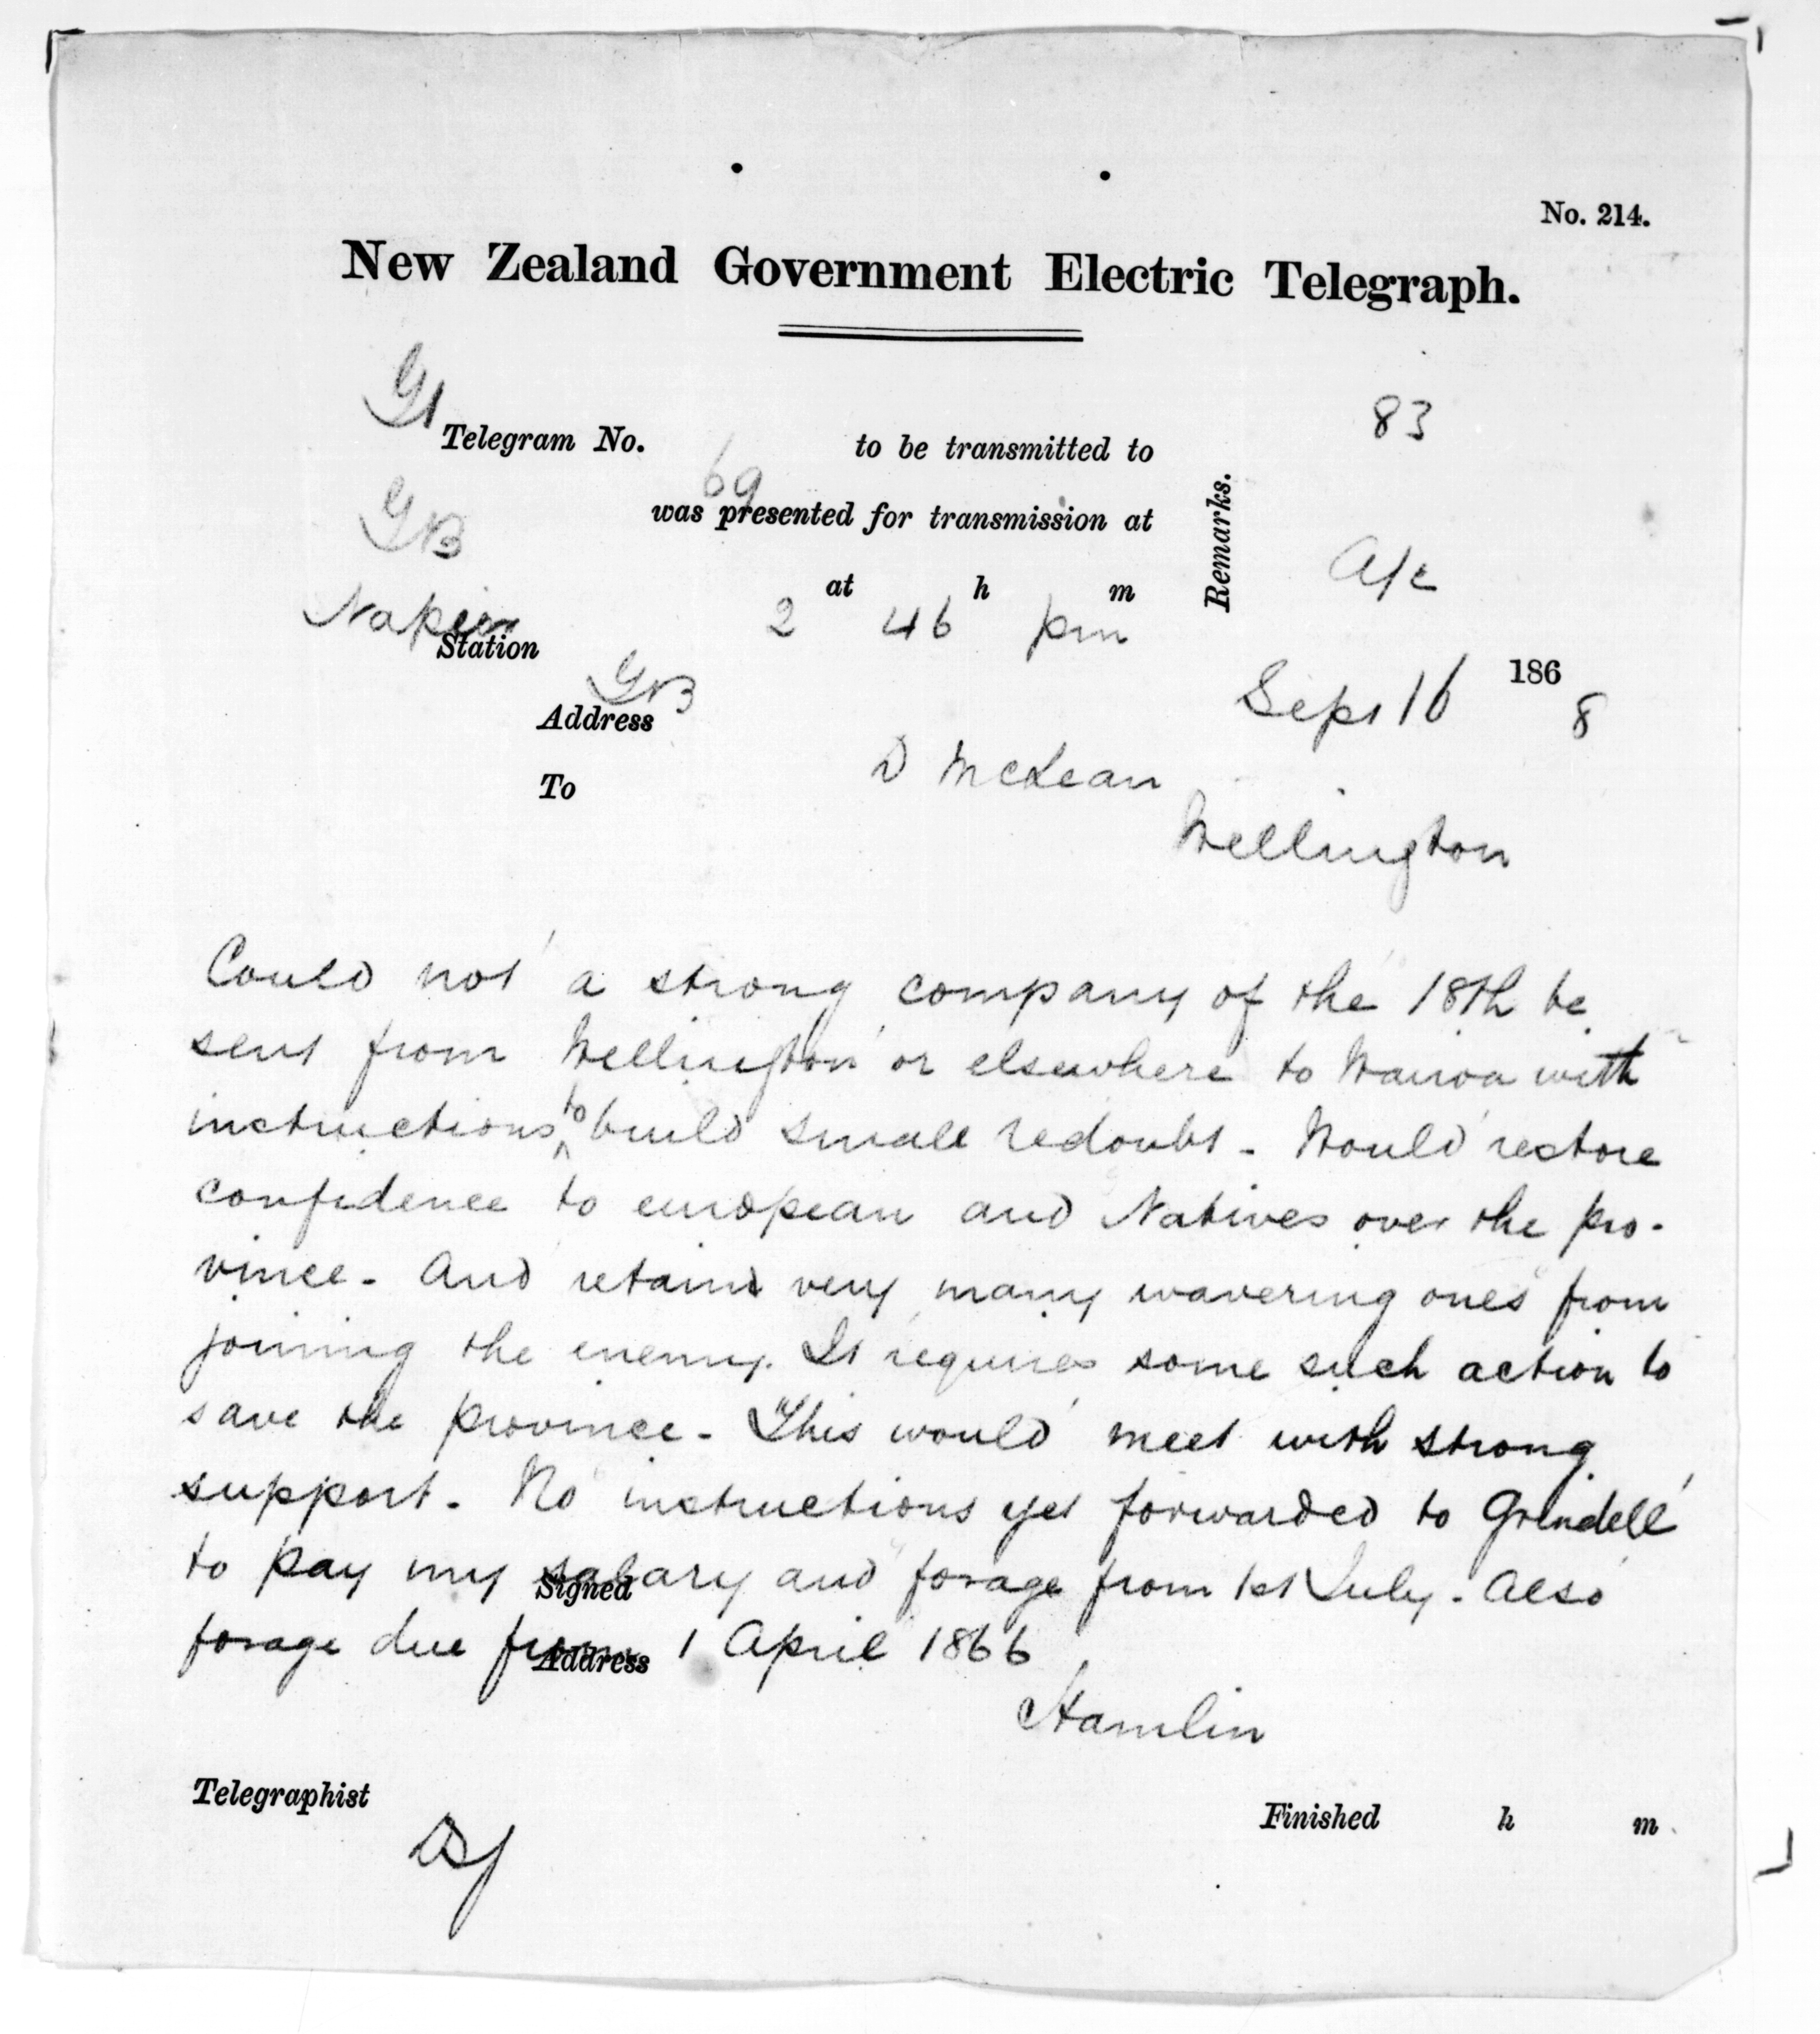 No. 214.
New Zealand Government Electric Telegraph.
83
Telegram No. to be transmitted to
69
was presented for transmission at
Remarks.
A/c
at h m
Napier 2 46 pm
Station
Sept 16 1868
Address
To D McLean
Wellington
Could not a strong company of the 18th be
sent from Wellington or elsewhere to Wairoa with
instructions to build small redoubt - Would restore
confidence to european and Natives over the pro-
vince - And retain very many wavering ones from
joining the enemy. It requires some such action to
save the province - This would meet with strong
support - No instructions yet forwarded to Grindell
to pay my salary and forage from 1st July - Also
Signed
forage due from 1 April 1866
Address
Hamlin
Telegraphist
Finished h m